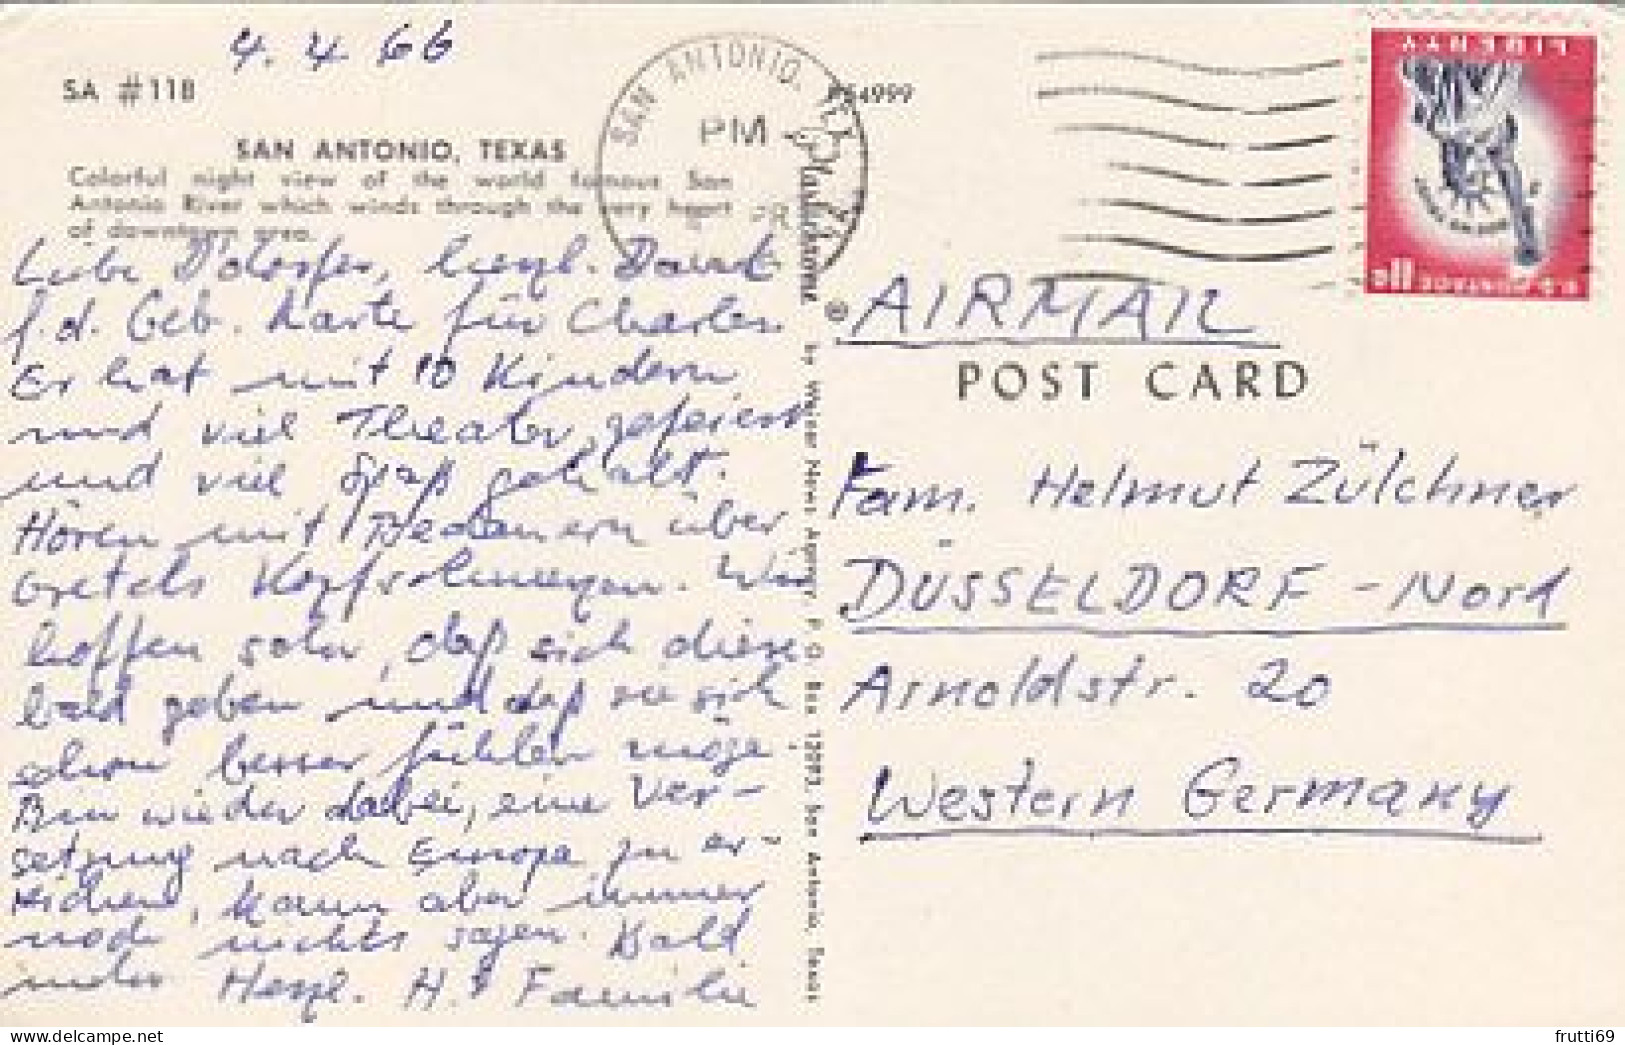 4. 4 66
SA #118
SAN ANTONIO, TEXAS
Colorful night view of the world famous San
Antonio River which winds through the very heart
of downtown area.
Liebe D'dorfer, herzl. Dank
f. d. Geb. Karte für Charles.
Er hat mit 10 Kindern
und viel Theater gefeiert
und viel Spaß gehabt.
Hören mit Bedauern über
Gretels Kopfschmerzen. Wir
hoffen sehr, daß sich diese
bald geben und daß sie sich
schon besser fühlen möge.
Bin wieder dabei, eine Ver-
setzung nach Europa zu er-
reichen, kann aber immer
noch nichts sagen. Bald
mehr. Herzl. H. & Familie
SAN ANTONIO, TEX
PM
Plastichrome
by Weiner News Agency, P. O. Box 12093, San Antonio, Texas
LIBERTY
U.S. POSTAGE 11¢
AIRMAIL
POST CARD
Fam. Helmut Zülchner
DÜSSELDORF - Nord
Arnoldstr. 20
Western Germany
frutti69